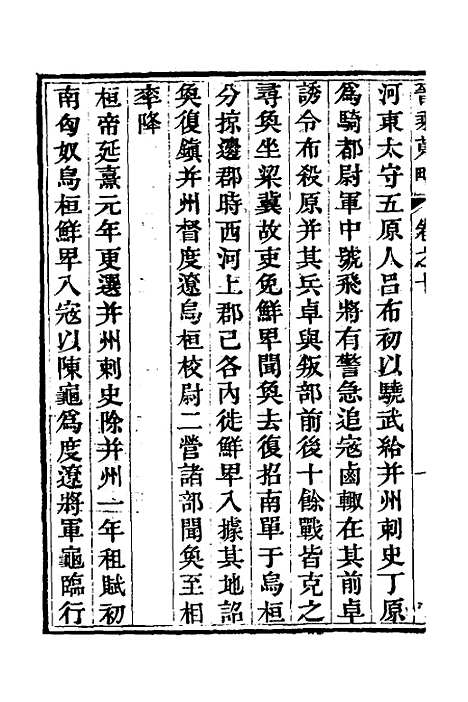 晉乘蒐略 卷之十
河東太守五原人呂布初以驍武給并州刺史丁原
爲騎都尉軍中號飛將有警急追寇鹵輙在其前卓
誘令布殺原并其兵卓與叛部前後十餘戰皆克之
尋奐坐梁冀故吏免鮮卑聞奐去復招南單于烏桓
分掠邊郡時西河上郡已各內徙鮮卑入據其地詔
奐復鎮并州督度遼烏桓校尉二營諸部聞奐至相
率降
桓帝延熹元年更選并州刺史除并州一年租賦初
南匈奴烏桓鮮卑入寇以陳龜爲度遼將軍龜臨行